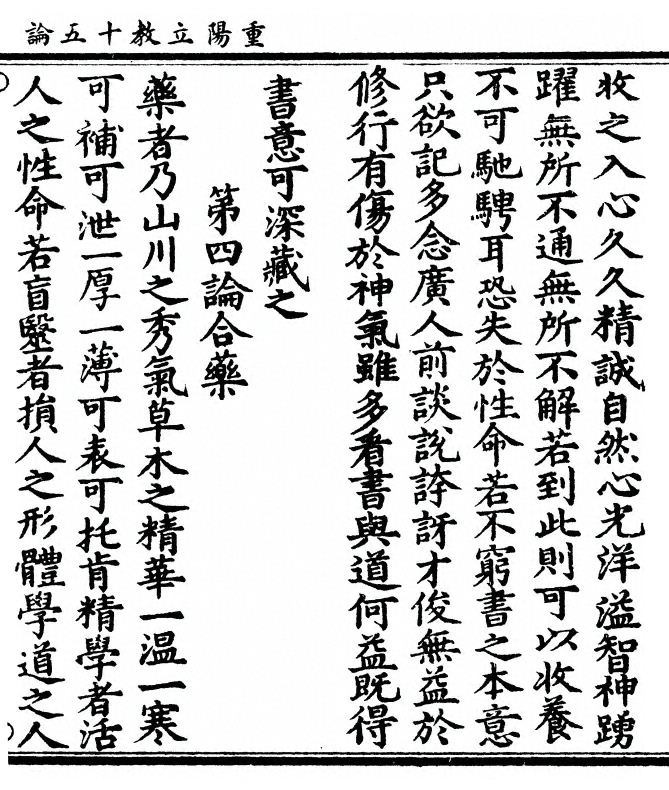 重陽立教十五論
收之入心久久精誠自然心光洋溢智神踴
躍無所不通無所不解若到此則可以收養
不可馳騁耳恐失於性命若不窮書之本意
只欲記多念廣人前談說誇訝才俊無益於
修行有傷於神氣雖多看書與道何益既得
書意可深藏之
第四論合藥
藥者乃山川之秀氣草木之精華一溫一寒
可補可泄一厚一薄可表可托肯精學者活
人之性命若盲毉者損人之形體學道之人